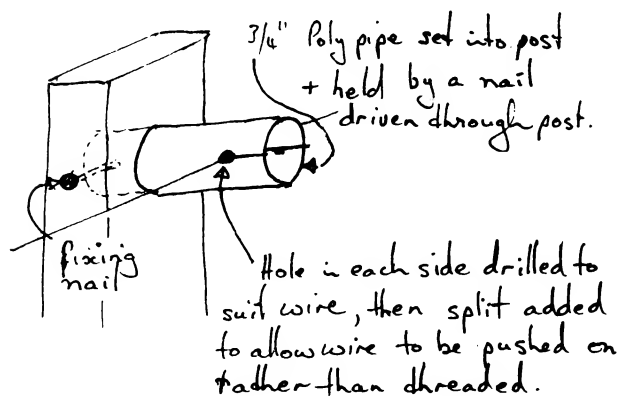 3/4" Poly pipe set into post
+ held by a nail
driven through post.
fixing
nail
Hole in each side drilled to
suit wire, then split added
to allow wire to be pushed on
rather than threaded.